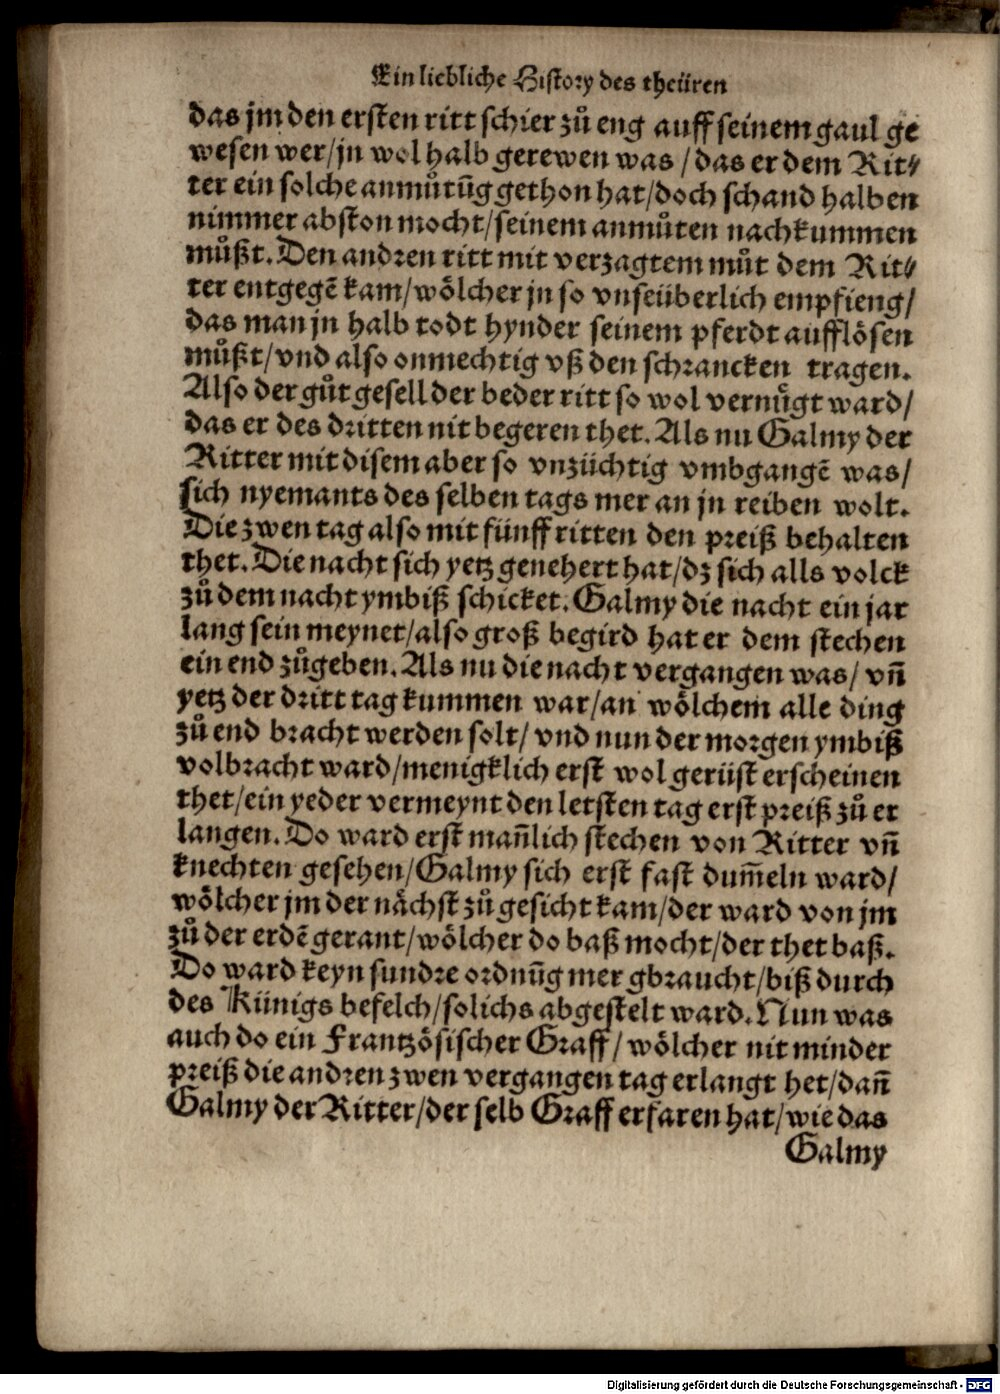 Ein liebliche History des theüren
das jm den ersten ritt schier zů eng auff seinem gaul ge
wesen wer/jn wol halb gerewen was/das er dem Rit⸗
ter ein solche anmůtũg gethon hat/doch schand halben
nimmer abston mocht/seinem anmůten nachkummen
můßt. Den andren ritt mit verzagtem můt dem Rit⸗
ter entgegẽ kam/wölcher jn so vnseüberlich empfieng/
das man jn halb todt hynder seinem pferdt aufflösen
můßt/vnd also onmechtig vß den schrancken tragen.
Also der gůt gesell der beder ritt so wol vernůgt ward/
das er des dritten nit begeren thet. Als nu Galmy der
Ritter mit disem aber so vnzüchtig vmbgangẽ was/
sich nyemants des selben tags mer an jn reiben wolt.
Die zwen tag also mit fünff ritten den preiß behalten
thet. Die nacht sich yetz genehert hat/dz sich alls volck
zů dem nacht ymbiß schicket. Galmy die nacht ein jar
lang sein meynet/also groß begird hat er dem stechen
ein end zůgeben. Als nu die nacht vergangen was/ vñ
yetz der dritt tag kummen war/an wölchem alle ding
zů end bracht werden solt/ vnd nun der morgen ymbiß
volbracht ward/menigklich erst wol gerüst erscheinen
thet/ein yeder vermeynt den letsten tag erst preiß zů er
langen. Do ward erst mañlich stechen von Ritter vñ
knechten gesehen/Galmy sich erst fast dum̃eln ward/
wölcher jm der nächst zů gesicht kam/der ward von jm
zů der erdẽ gerant/wölcher do baß mocht/der thet baß.
Do ward keyn sundre ordnũg mer gbraucht/biß durch
des Künigs befelch/solichs abgestelt ward. Nun was
auch do ein Frantzösischer Graff/ wölcher nit minder
preiß die andren zwen vergangen tag erlangt het/dañ
Galmy der Ritter/der selb Graff erfaren hat/wie das
Galmy
Digitalisierung gefördert durch die Deutsche Forschungsgemeinschaft - DFG